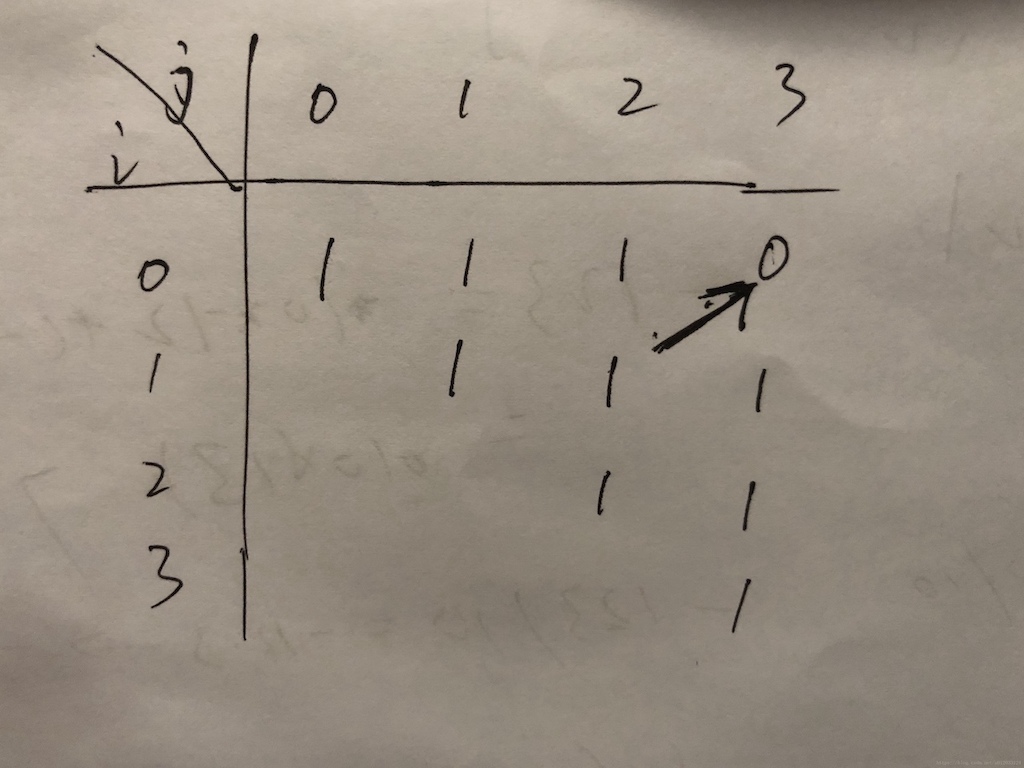 j 0 1 2 3
i
0 1 1 1 0
1 1 1 1
2 1 1
3 1